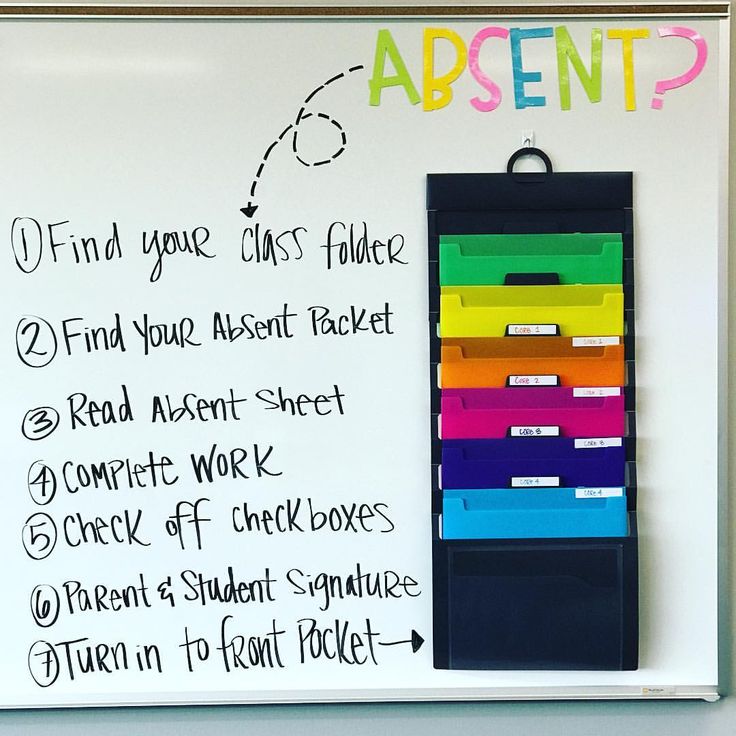 ABSENT?
① Find your class folder
② Find Your Absent Packet
③ Read Absent Sheet
④ Complete Work
⑤ Check off checkboxes
⑥ Parent & Student Signature
⑦ Turn in to front Pocket
CORE 1
CORE 2
CORE 4
CORE 4